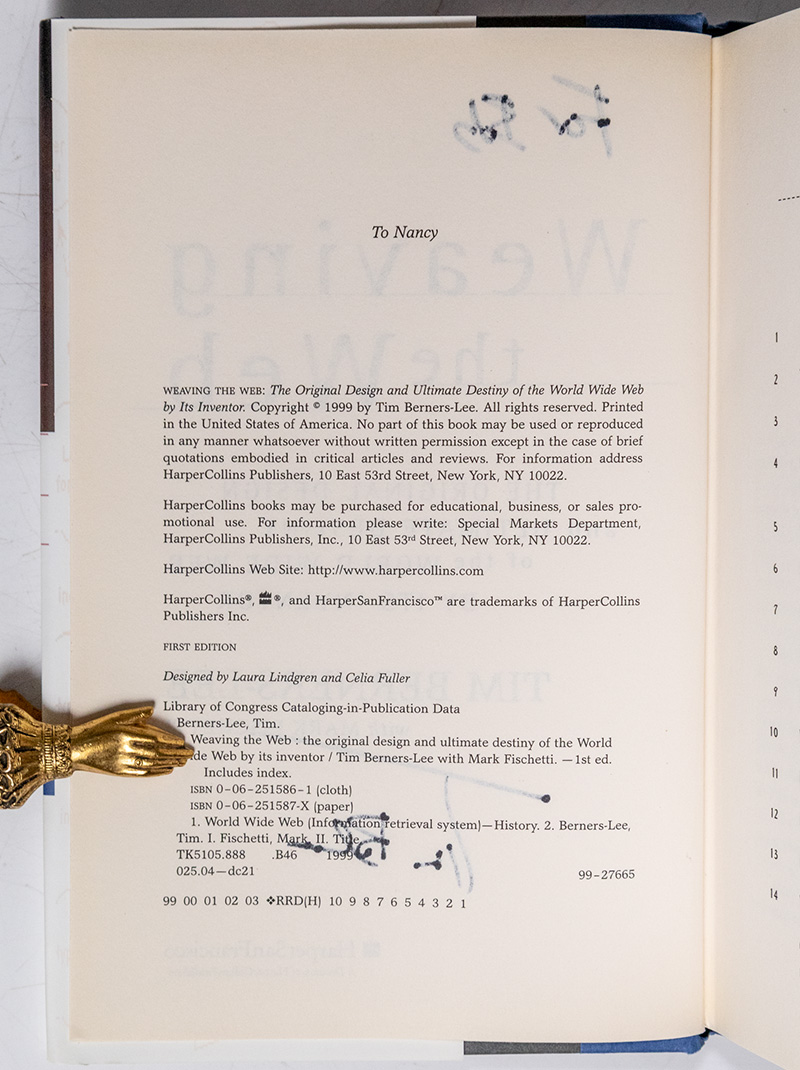 To Nancy
WEAVING THE WEB: The Original Design and Ultimate Destiny of the World Wide Web
by Its Inventor. Copyright © 1999 by Tim Berners-Lee. All rights reserved. Printed
in the United States of America. No part of this book may be used or reproduced
in any manner whatsoever without written permission except in the case of brief
quotations embodied in critical articles and reviews. For information address
HarperCollins Publishers, 10 East 53rd Street, New York, NY 10022.
HarperCollins books may be purchased for educational, business, or sales pro-
motional use. For information please write: Special Markets Department,
HarperCollins Publishers, Inc., 10 East 53rd Street, New York, NY 10022.
HarperCollins Web Site: http://www.harpercollins.com
HarperCollins®, ®, and HarperSanFrancisco™ are trademarks of HarperCollins
Publishers Inc.
FIRST EDITION
Designed by Laura Lindgren and Celia Fuller
Library of Congress Cataloging-in-Publication Data
Berners-Lee, Tim.
Weaving the Web : the original design and ultimate destiny of the World
ide Web by its inventor / Tim Berners-Lee with Mark Fischetti. — 1st ed.
Includes index.
ISBN 0-06-251586-1 (cloth)
ISBN 0-06-251587-X (paper)
1. World Wide Web (Information retrieval system)—History. 2. Berners-Lee,
Tim. I. Fischetti, Mark. II. Title.
TK5105.888 .B46 1999
025.04—dc21 99-27665
99 00 01 02 03 ❖RRD(H) 10 9 8 7 6 5 4 3 2 1
1
2
3
4
5
6
7
8
9
10
11
12
13
14